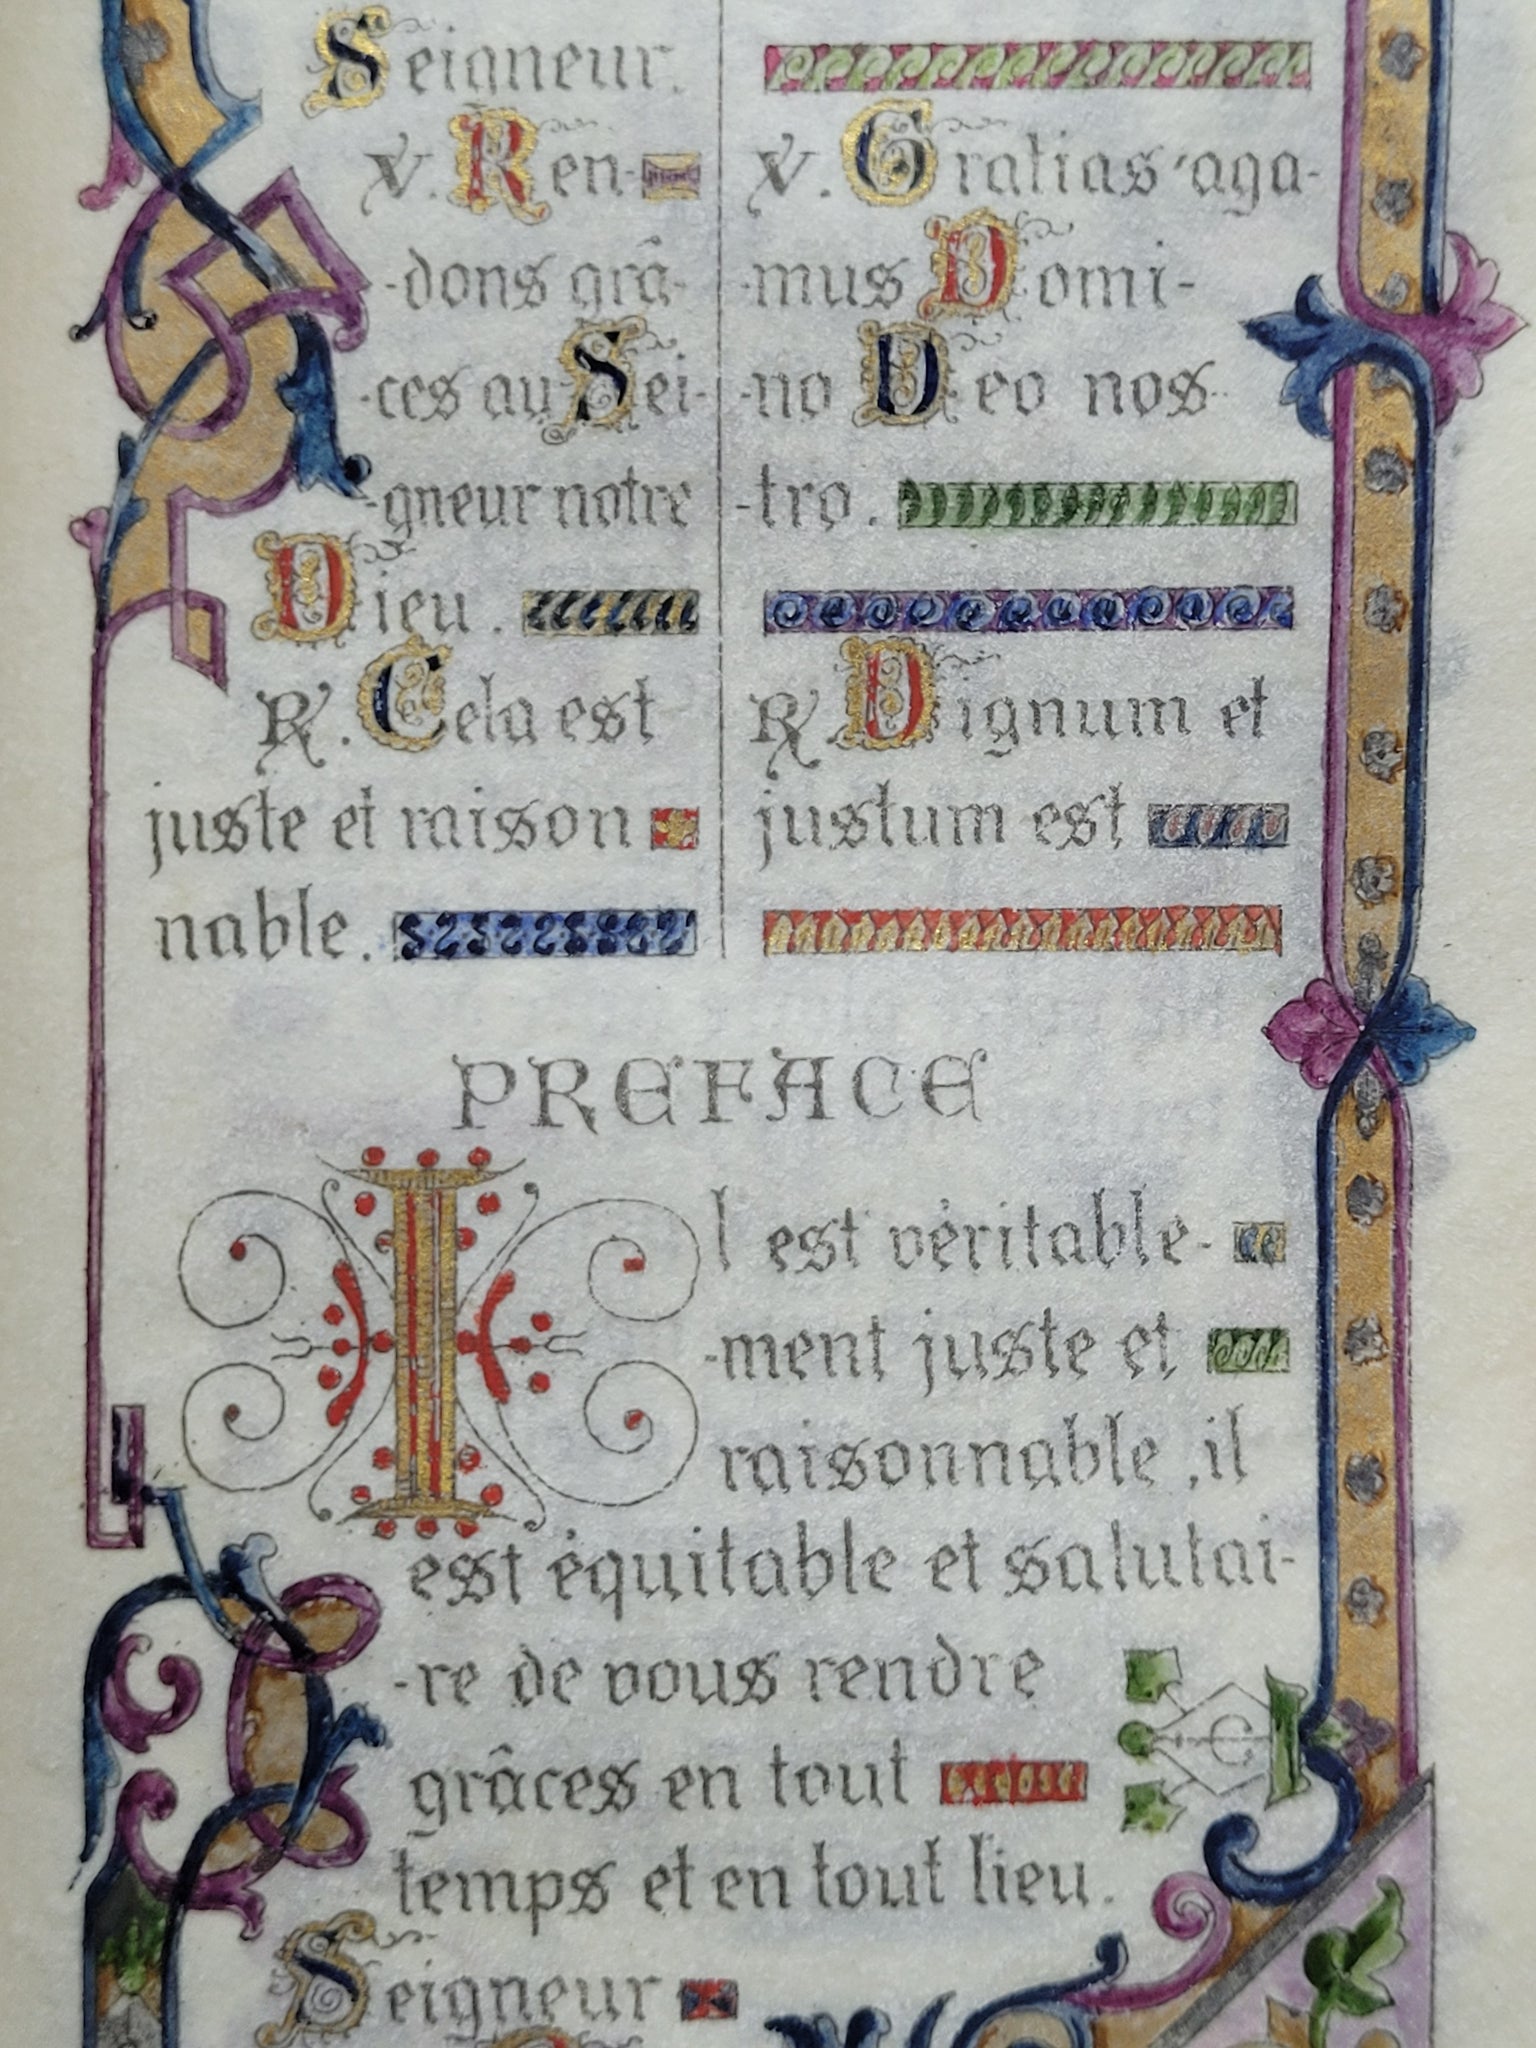 Seigneur.
℣. Ren-
-dons grâ-
-ces au Sei-
-gneur notre
Dieu.
℟. Cela est
juste et raison
nable.
℣. Gratias aga-
-mus Domi-
-no Deo nos
-tro.
℟. Dignum et
justum est
PREFACE
Il est véritable-
-ment juste et
raisonnable, il
est équitable et salutai-
-re de vous rendre
grâces en tout
temps et en tout lieu.
Seigneur